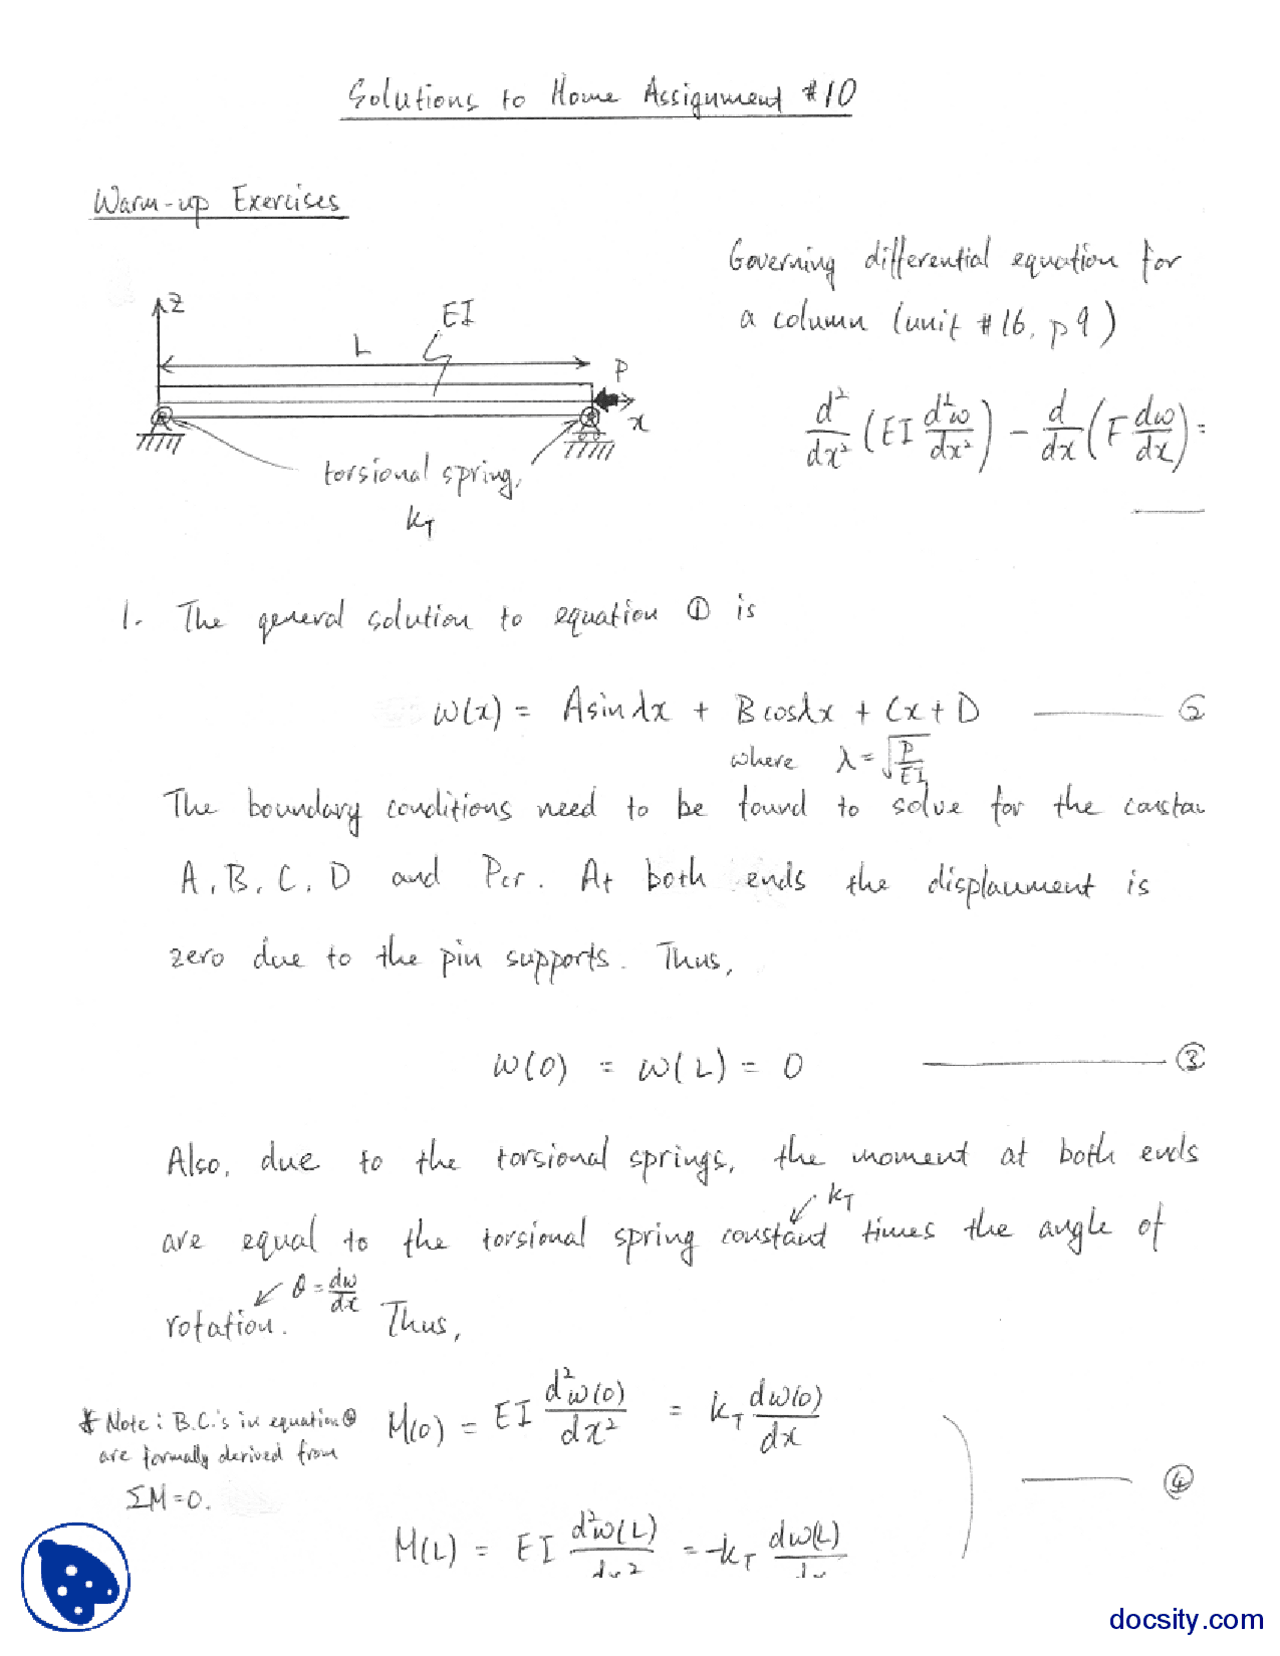 Solutions to Home Assignment #10
Warm-up Exercises
Governing differential equation for
a column (unit #16, p9)
z
EI
L
P
x
torsional spring,
k_T
d²/dx² (EI d²w/dx²) - d/dx (F dw/dx) =
1. The general solution to equation ① is
w(x) = A sin λx + B cos λx + Cx + D ——— ②
where λ = √(P/EI)
The boundary conditions need to be found to solve for the constan
A, B, C, D and Pcr. At both ends the displacement is
zero due to the pin supports. Thus,
w(0) = w(L) = 0 ——— ③
Also, due to the torsional springs, the moment at both ends
k_T
are equal to the torsional spring constant times the angle of
θ = dw/dx
rotation. Thus,
* Note: B.C.'s in equation ④
are formally derived from
ΣM = 0.
M(0) = EI d²w(0)/dx² = k_T dw(0)/dx
——— ④
M(L) = EI d²w(L)/dx² = -k_T dw(L)/dx
docsity.com